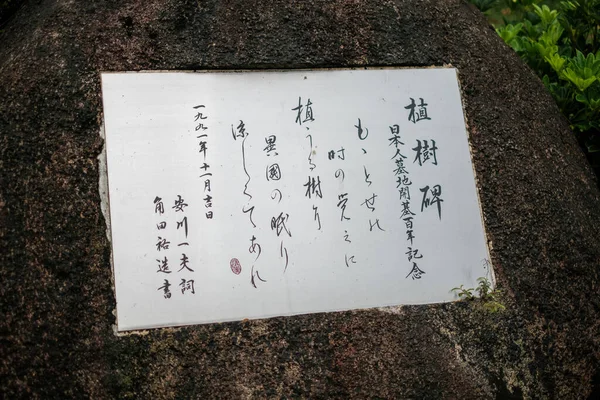 植樹碑
日本人墓地開墓百年記念
もゝとせの
時の覚えに
植うる樹々
異國の眠り
涼しくてあれ
一九九一年十一月吉日
安川一夫詞
角田祐造書